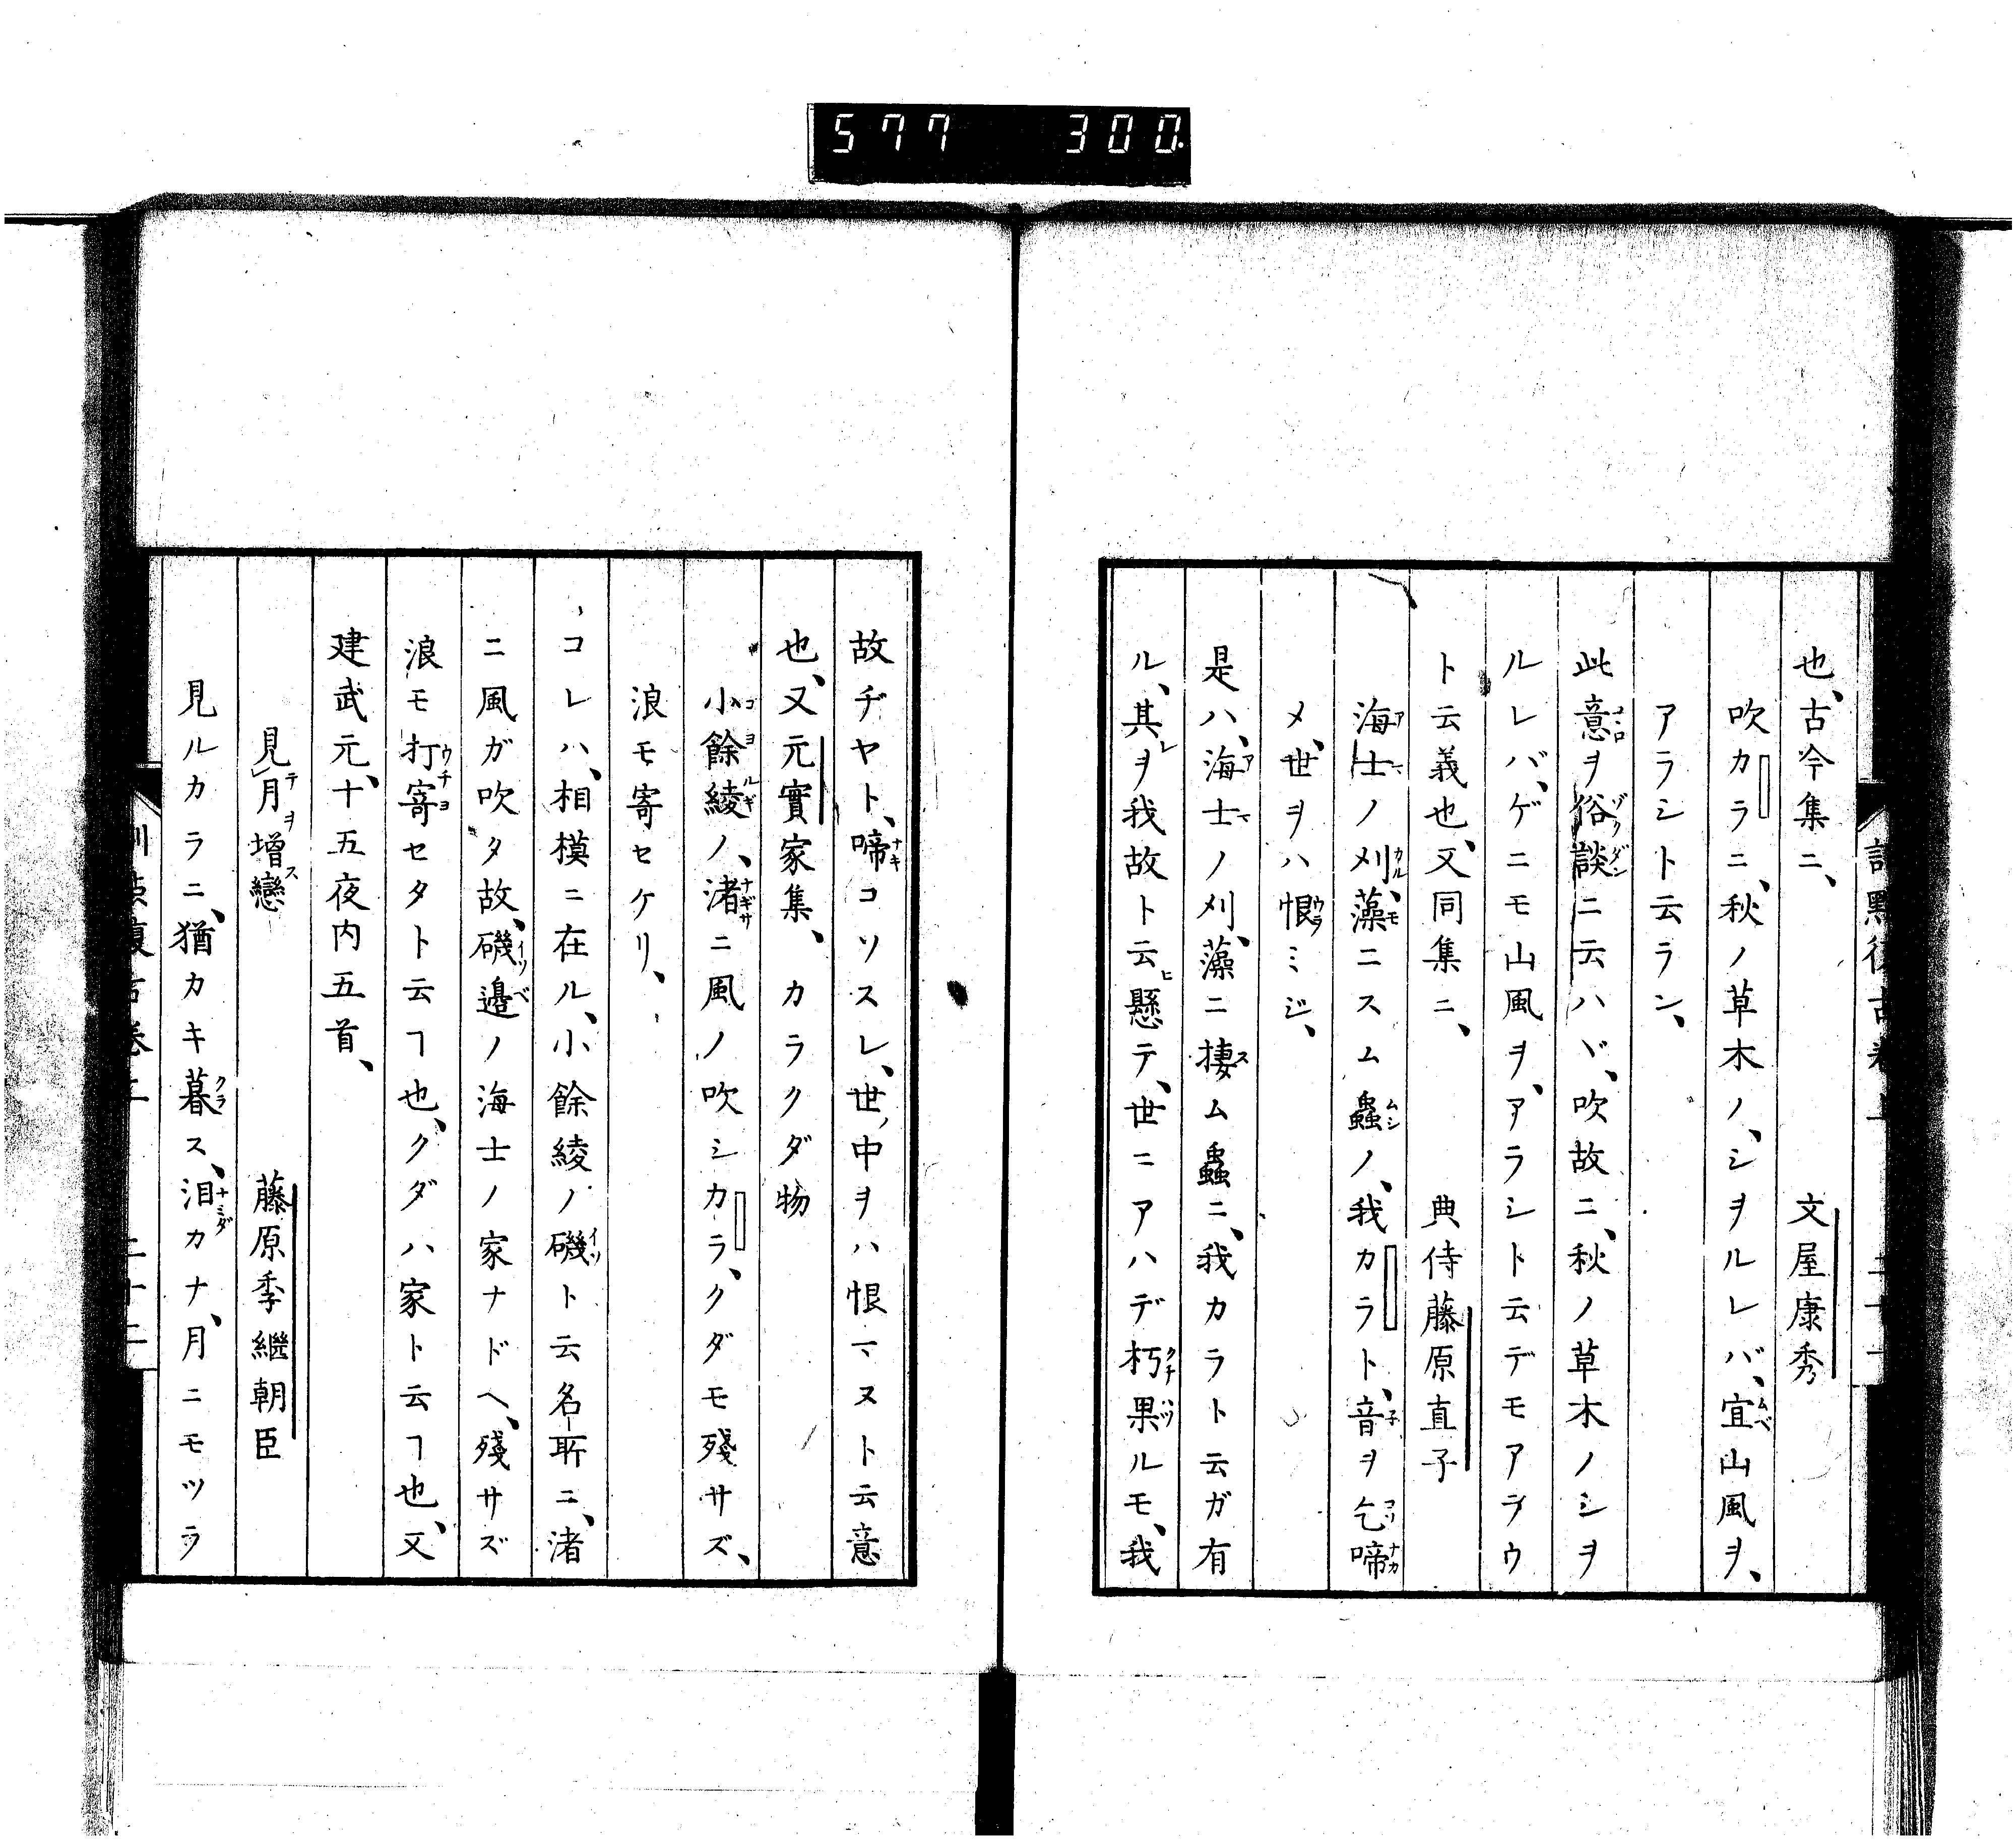 577 300
也、古今集ニ、 文屋康秀
吹カラニ、秋ノ草木ノ、シヲルレバ、宜山風ヲ、
アラシト云ラン、
此意ヲ俗談ニ云ハヾ、吹故ニ、秋ノ草木ノシヲ
ルレバ、ゲニモ山風ヲ、アラシト云デモアラウ
ト云義也、又同集ニ、 典侍藤原直子
海士ノ刈、藻ニスム蟲ノ、我カラト、音ヲ乞啼
メ、世ヲハ恨ミジ、
是ハ、海士ノ刈、藻ニ捿ム蟲ニ、我カラト云ガ有
ル、其ヲ我故ト云懸テ、世ニアハデ朽果ルモ、我
故ヂヤト、啼コソスレ、世ノ中ヲハ恨マヌト云意
也、又元實家集、 カラクダ物
小餘綾ノ、渚ニ風ノ吹シカラ、クダモ殘サズ、
浪モ寄セケリ、
コレハ、相模ニ在ル、小餘綾ノ磯ト云名所ニ、渚
ニ風ガ吹タ故、磯邉ノ海士ノ家ナドヘ、殘サズ
浪モ打寄セタト云ヿ也、クダハ家ト云ヿ也、又
建武元、十五夜内五首、
見月増戀 藤原季繼朝臣
見ルカラニ、猶カキ暮ス、泪カナ、月ニモツラ